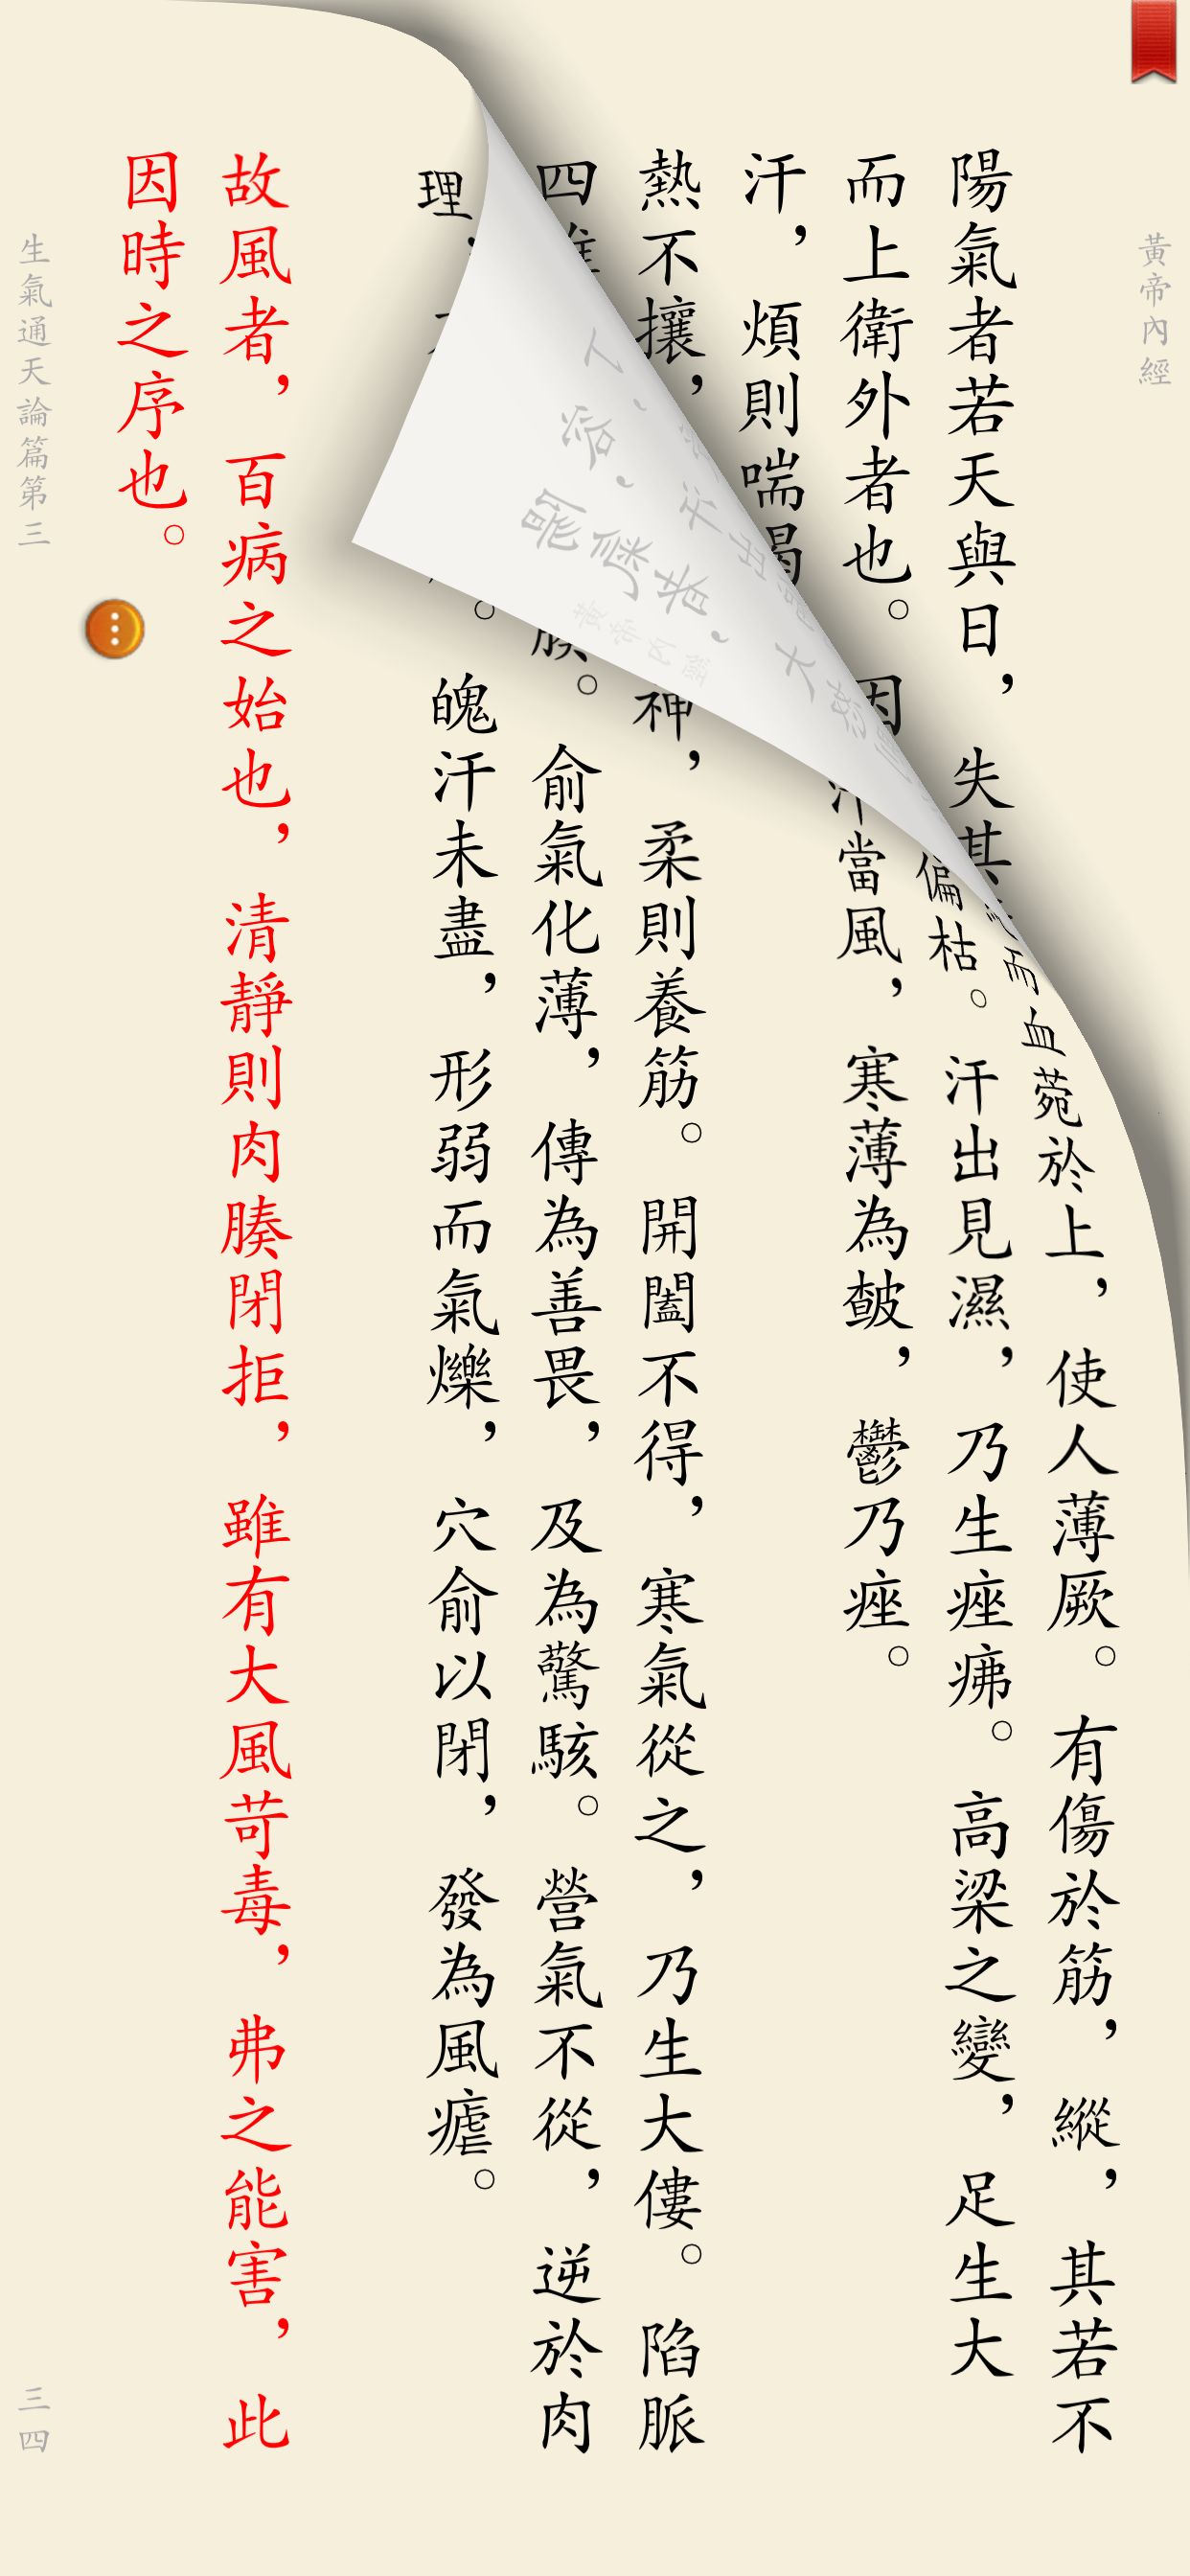 黃帝內經
陽氣者若天與日，失其
而上衛外者也。因
汗，煩則喘喝
熱不攘，
四
而血菀於上，使人薄厥。有傷於筋，縱，其若不
偏枯。汗出見濕，乃生痤疿。高梁之變，足生大
汗當風，寒薄為皶，鬱乃痤。
神，柔則養筋。開闔不得，寒氣從之，乃生大僂。陷脈
腠。俞氣化薄，傳為善畏，及為驚駭。營氣不從，逆於肉
理，
。魄汗未盡，形弱而氣爍，穴俞以閉，發為風瘧。
故風者，百病之始也，清靜則肉腠閉拒，雖有大風苛毒，弗之能害，此
因時之序也。
生氣通天論篇第三
三四